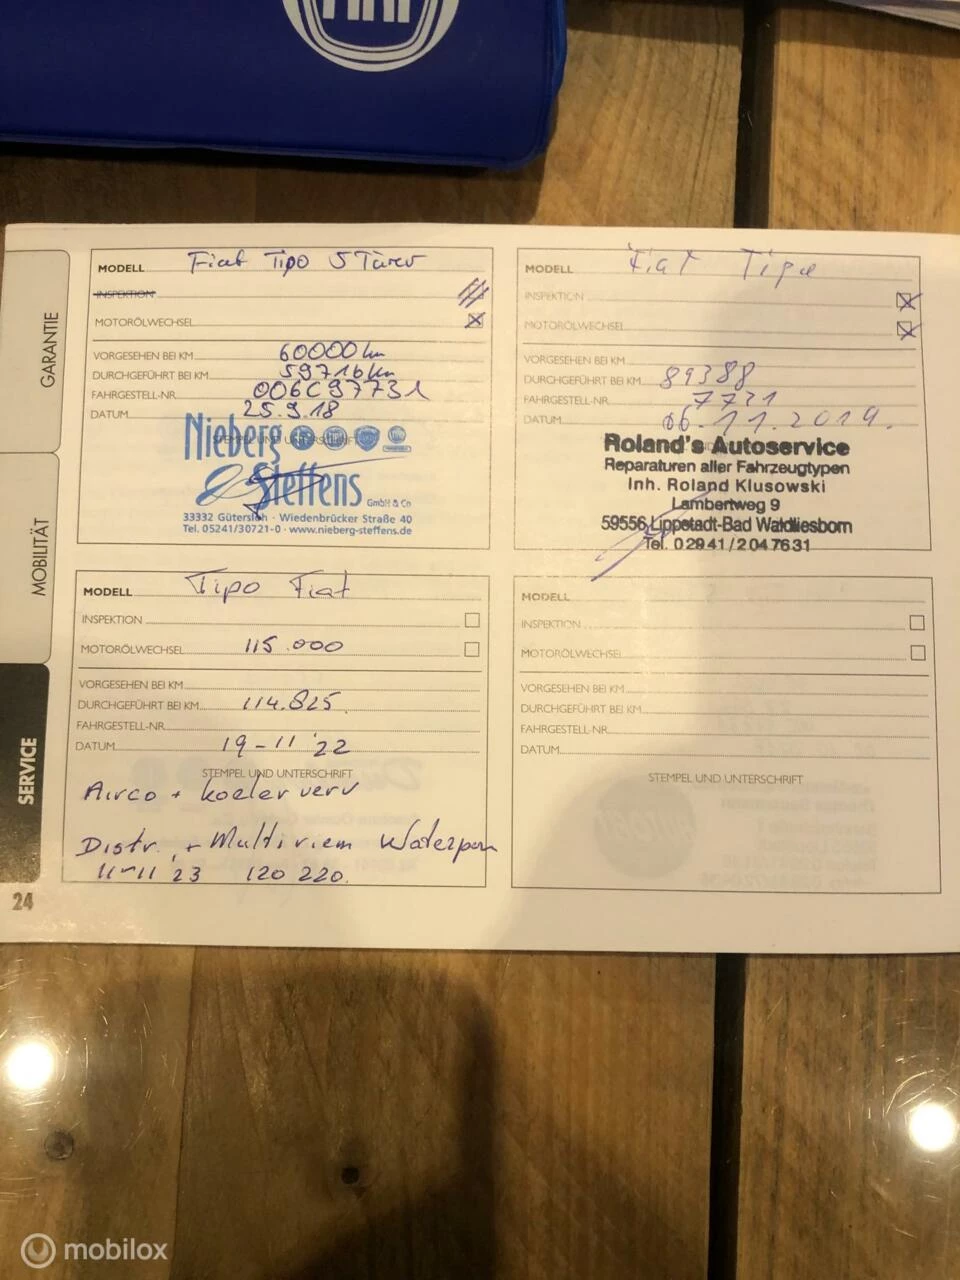 FIAT
GARANTIE
MOBILITÄT
SERVICE
MODELL Fiat Tipo 5 Türer
INSPEKTION
MOTORÖLWECHSEL
VORGESEHEN BEI KM 60000 km
DURCHGEFÜHRT BEI KM 59716 km
FAHRGESTELL-NR. 006C97731
DATUM 25.9.18
STEMPEL UND UNTERSCHRIFT
Nieberg
Steffens GmbH & Co
33332 Gütersloh · Wiedenbrücker Straße 40
Tel. 05241/30721-0 · www.nieberg-steffens.de
MODELL Fiat Tipo
INSPEKTION
MOTORÖLWECHSEL
VORGESEHEN BEI KM
DURCHGEFÜHRT BEI KM 89388
FAHRGESTELL-NR. 7731
DATUM 06.11.2019.
Roland's Autoservice
Reparaturen aller Fahrzeugtypen
Inh. Roland Klusowski
Lambertweg 9
59556 Lippstadt-Bad Waldliesborn
Tel. 02941/2047631
MODELL Tipo Fiat
INSPEKTION
MOTORÖLWECHSEL 115.000
VORGESEHEN BEI KM
DURCHGEFÜHRT BEI KM 114.825
FAHRGESTELL-NR.
DATUM 19-11 '22
STEMPEL UND UNTERSCHRIFT
Airco + koeler verv
Distr. + Multiriem Waterpom
11-11 '23 120 220.
MODELL
INSPEKTION
MOTORÖLWECHSEL
VORGESEHEN BEI KM
DURCHGEFÜHRT BEI KM
FAHRGESTELL-NR.
DATUM
STEMPEL UND UNTERSCHRIFT
24
mobilox